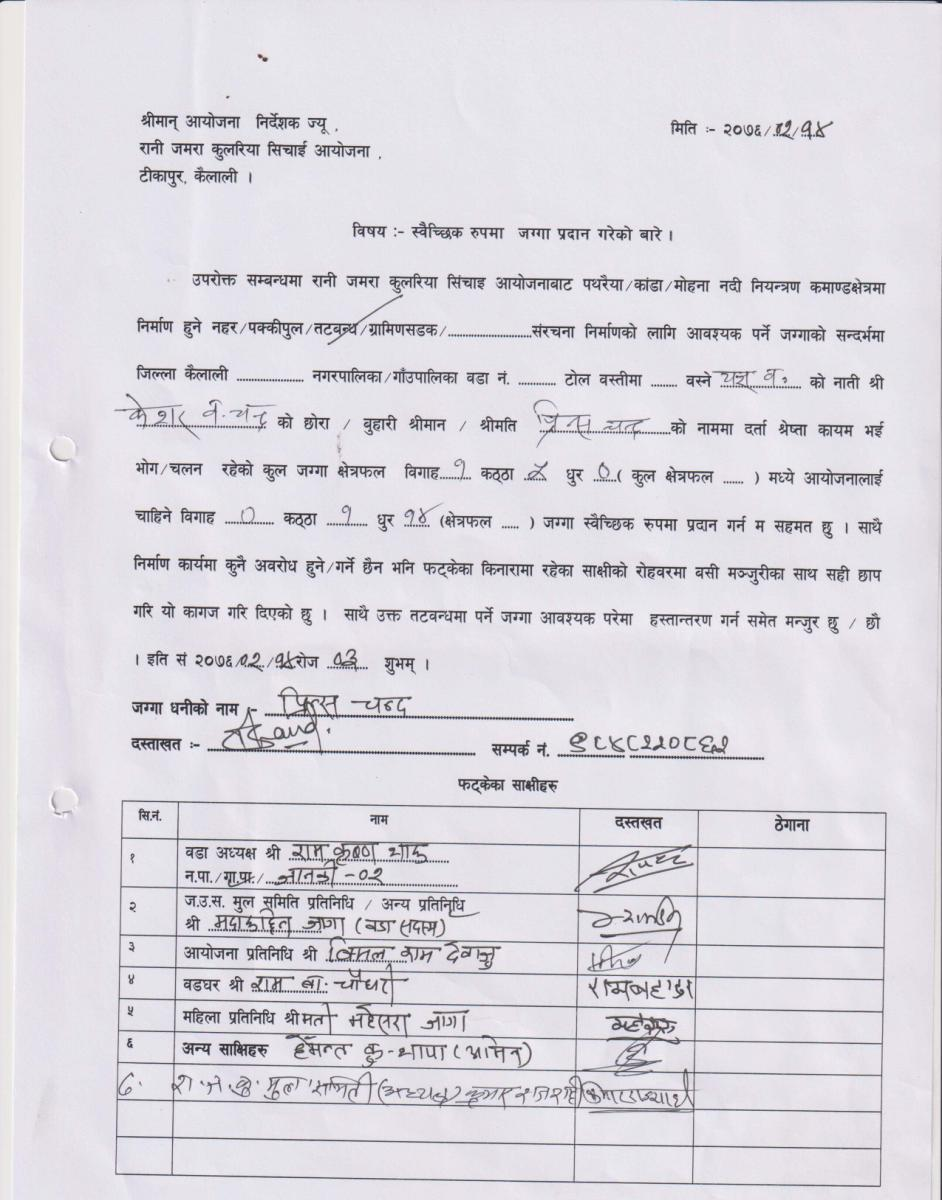 श्रीमान् आयोजना निर्देशक ज्यू ,
मिति :- २०७६/०२/१४
रानी जमरा कुलरिया सिचाई आयोजना ,
टीकापुर, कैलाली ।
विषय :- स्वैच्छिक रुपमा जग्गा प्रदान गरेको बारे ।
उपरोक्त सम्बन्धमा रानी जमरा कुलरिया सिंचाइ आयोजनाबाट पथरैया/कांडा/मोहना नदी नियन्त्रण कमाण्डक्षेत्रमा
निर्माण हुने नहर/पक्कीपुल/तटबन्ध/ग्रामिणसडक/....................संरचना निर्माणको लागि आवश्यक पर्ने जग्गाको सन्दर्भमा
जिल्ला कैलाली ................ नगरपालिका/गाँउपालिका वडा नं. ......... टोल वस्तीमा ....... वस्ने यज्ञ ब. को नाती श्री
केशर ब. चन्द को छोरा / बुहारी श्रीमान / श्रीमति प्रिन्स चन्द को नाममा दर्ता श्रेष्ता कायम भई
भोग/चलन रहेको कुल जग्गा क्षेत्रफल विगाह १ कठ्ठा धुर ०( कुल क्षेत्रफल ...... ) मध्ये आयोजनालाई
चाहिने विगाह ० कठ्ठा १ धुर १४ (क्षेत्रफल ..... ) जग्गा स्वैच्छिक रुपमा प्रदान गर्न म सहमत छु । साथै
निर्माण कार्यमा कुनै अवरोध हुने/गर्ने छैन भनि फट्केका किनारामा रहेका साक्षीको रोहवरमा बसी मञ्जुरीका साथ सही छाप
गरि यो कागज गरि दिएको छु । साथै उक्त तटवन्धमा पर्ने जग्गा आवश्यक परेमा हस्तान्तरण गर्न समेत मन्जुर छु / छौ
। इति सं २०७६/०२/१४रोज ०३ शुभम् ।
जग्गा धनीको नाम :- प्रिन्स चन्द
दस्ताखत :- सम्पर्क नं. ९८४८२२०८६२
फट्केका साक्षीहरु
सि.नं. नाम दस्तखत ठेगाना
१ वडा अध्यक्ष श्री राम कृष्ण
न.पा./गा.पा./ जानकी -०२
२ ज.उ.स. मुल समिति प्रतिनिधि / अन्य प्रतिनिधि
श्री जागा (वडा सदस्य)
३ आयोजना प्रतिनिधि श्री विमल राम देवाजु
४ वडघर श्री राम बा. चौधरी रामबहादुर
५ महिला प्रतिनिधि श्रीमती महेसरा जागा
६ अन्य साक्षिहरु हेमन्त कु. थापा (अमिन)
७. रा. ज. कु. मुल समिती (अध्यक्ष)